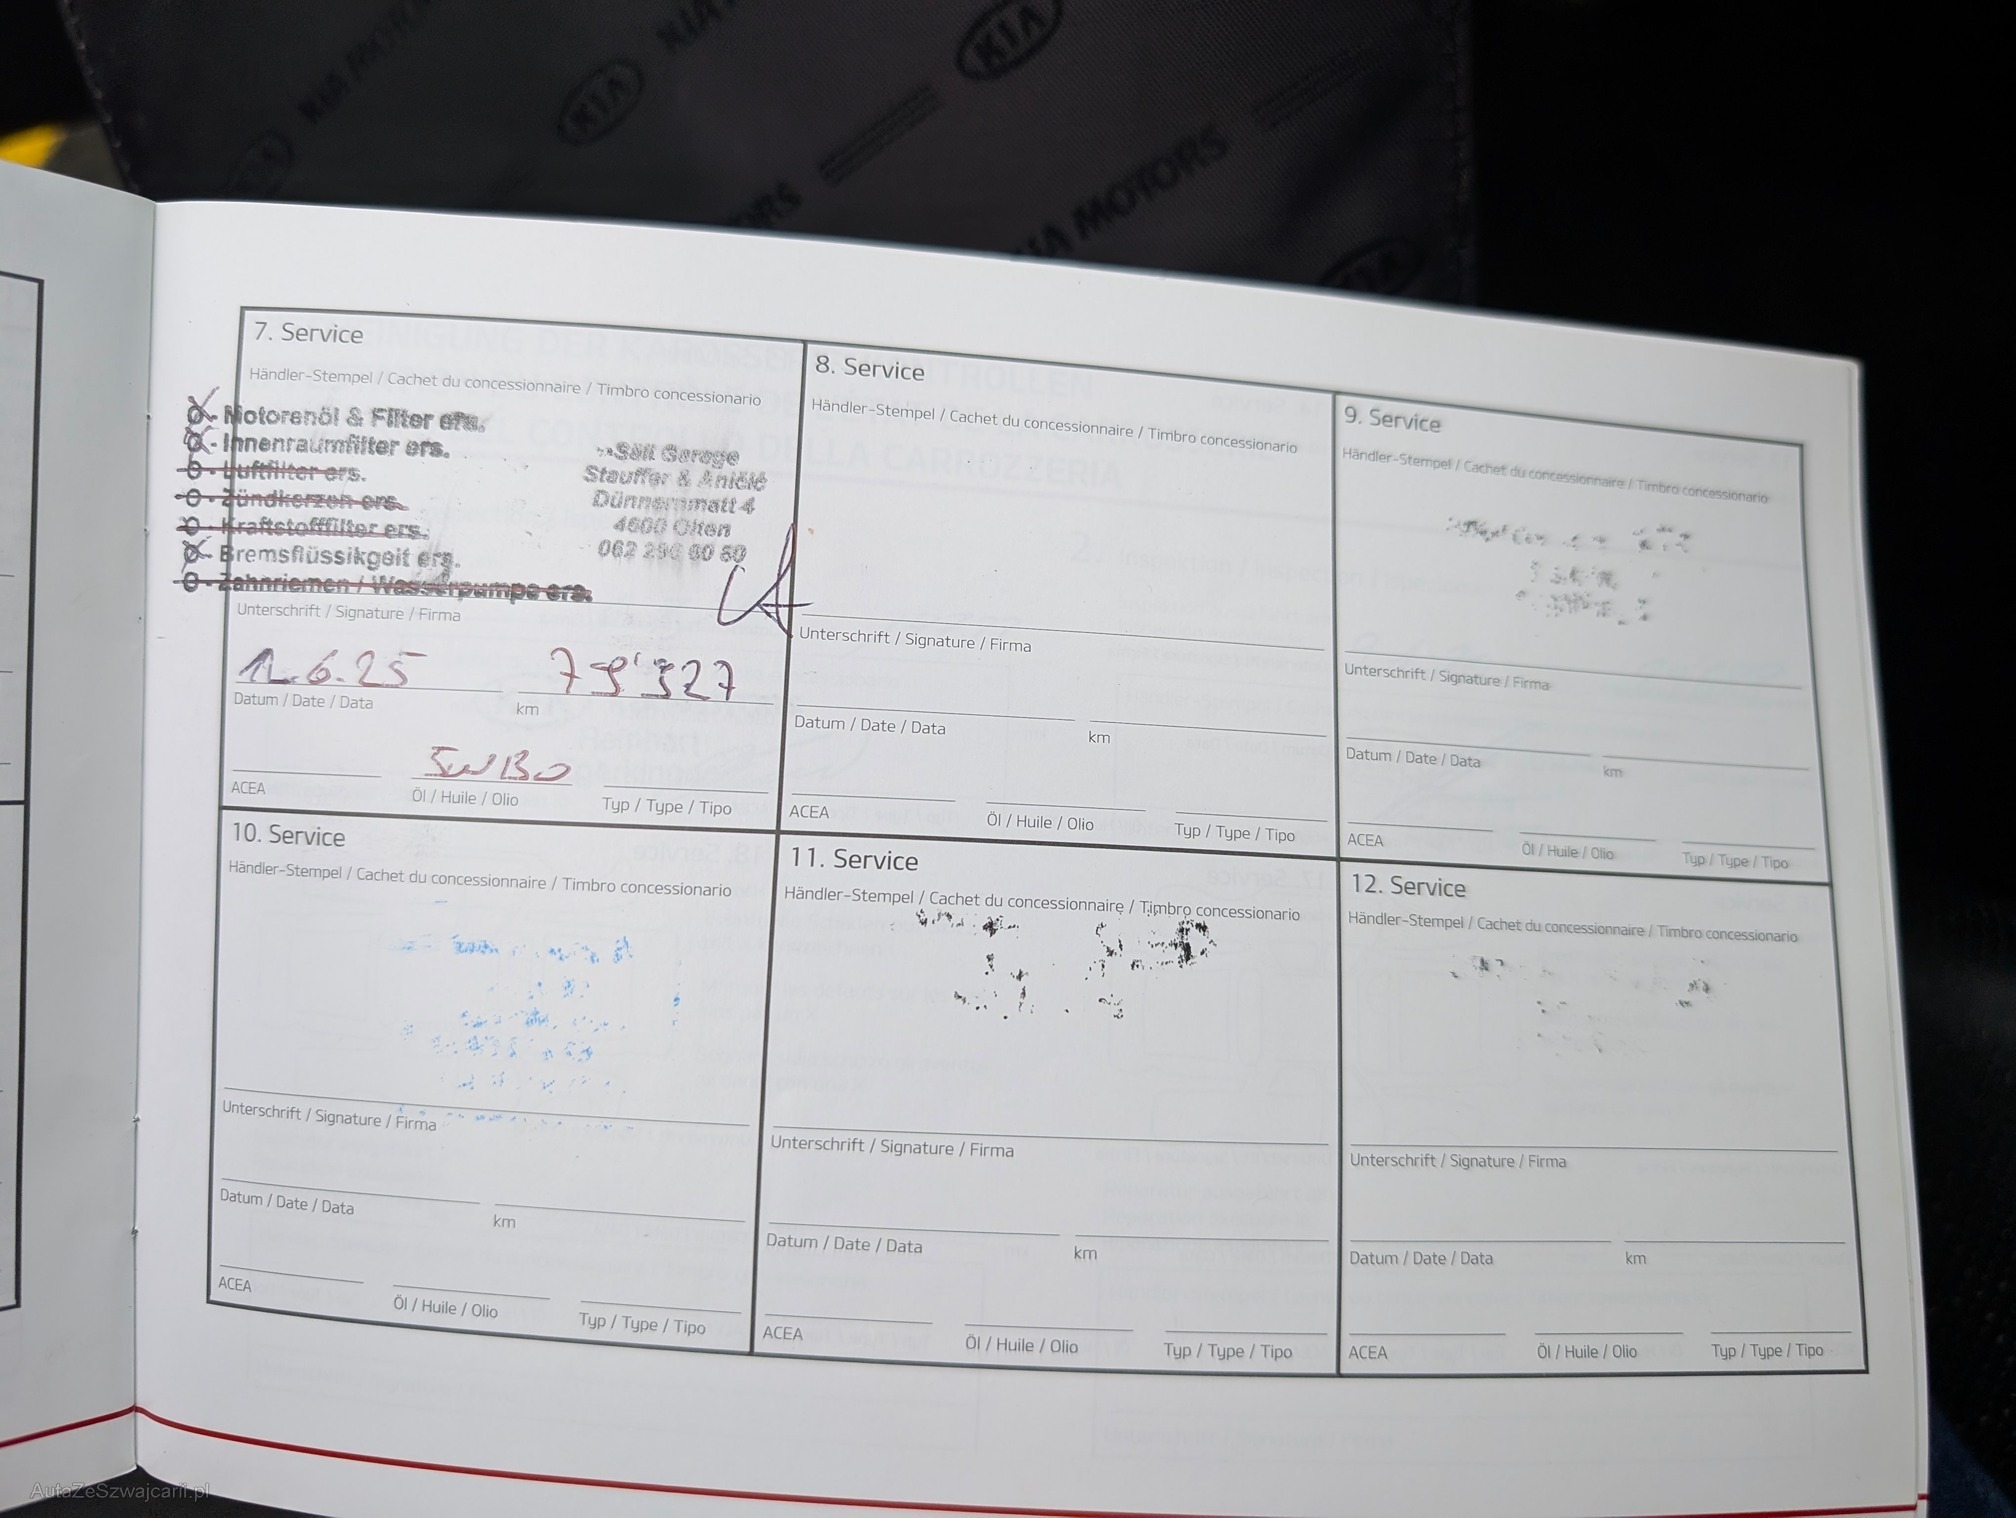 KIA MOTORS
KIA
KIA MOTORS
KIA
7. Service
Händler-Stempel / Cachet du concessionnaire / Timbro concessionario
O - Motorenöl & Filter ers.
O - Innenraumfilter ers.
O - Luftfilter ers.
O - Zündkerzen ers.
O - Kraftstofffilter ers.
O - Bremsflüssikgeit ers.
O - Zahnriemen / Wasserpumpe ers.
Säli Garage
Stauffer & Aničić
Dünnernmatt 4
4600 Olten
Unterschrift / Signature / Firma
6.25
Datum / Date / Data
km
5W30
ACEA
Öl / Huile / Olio
Typ / Type / Tipo
8. Service
Händler-Stempel / Cachet du concessionnaire / Timbro concessionario
Unterschrift / Signature / Firma
Datum / Date / Data
km
ACEA
Öl / Huile / Olio
Typ / Type / Tipo
9. Service
Händler-Stempel / Cachet du concessionnaire / Timbro concessionario
Unterschrift / Signature / Firma
Datum / Date / Data
km
ACEA
Öl / Huile / Olio
Typ / Type / Tipo
10. Service
Händler-Stempel / Cachet du concessionnaire / Timbro concessionario
Unterschrift / Signature / Firma
Datum / Date / Data
km
ACEA
Öl / Huile / Olio
Typ / Type / Tipo
11. Service
Händler-Stempel / Cachet du concessionnaire / Timbro concessionario
Unterschrift / Signature / Firma
Datum / Date / Data
km
ACEA
Öl / Huile / Olio
Typ / Type / Tipo
12. Service
Händler-Stempel / Cachet du concessionnaire / Timbro concessionario
Unterschrift / Signature / Firma
Datum / Date / Data
km
ACEA
Öl / Huile / Olio
Typ / Type / Tipo
AutaZeSzwajcarii.pl